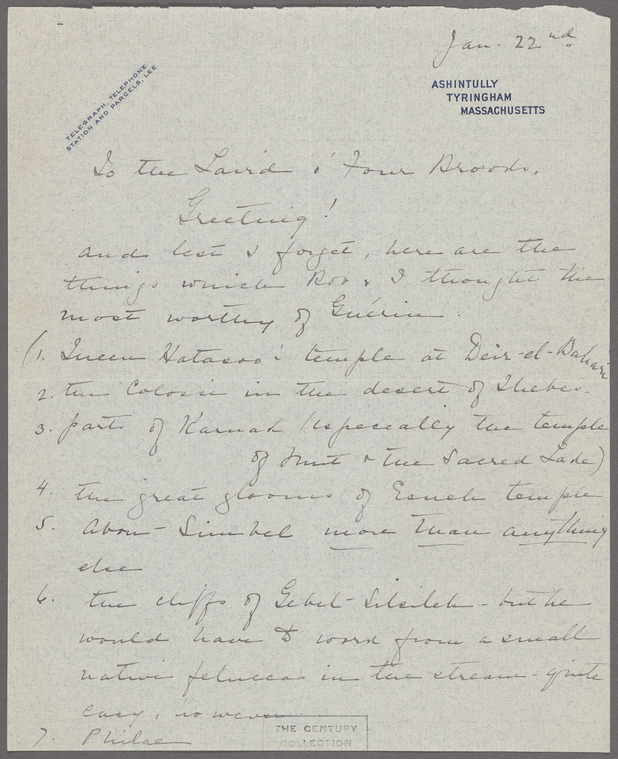 Jan. 22nd
TELEGRAPH, TELEPHONE
STATION AND PARCELS, LEE
ASHINTULLY
TYRINGHAM
MASSACHUSETTS
To the Laird o' Four Brooks,
Greeting!
and lest I forget, here are the
things which Rob & I thought the
most worthy of Guérin.
(1. Queen Hatasoo's temple at Deir-el-Bahari
2. the Colossi in the desert of Thebes.
3. parts of Karnak (especially the temple
of Mut & the Sacred Lake)
4. the great glooms of Esneh temple
5. Abou-Simbel more than anything
else
6. the cliffs of Gebel-Silsileh - but he
would have to work from a small
native felucca in the stream - quite
easy, however
7. Philae
THE CENTURY
COLLECTION